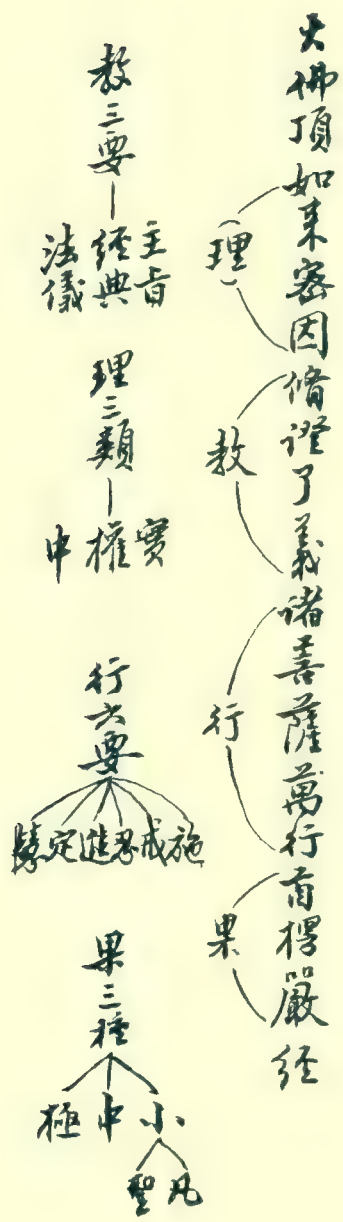 大佛頂如來密因脩證了義諸菩薩萬行首楞嚴經
(理)
教
行
果
教三要
主旨
經典
法儀
理三類
實
權
中
行六要
施
戒
忍
進
定
慧
果三種
小
中
極
凡
聖